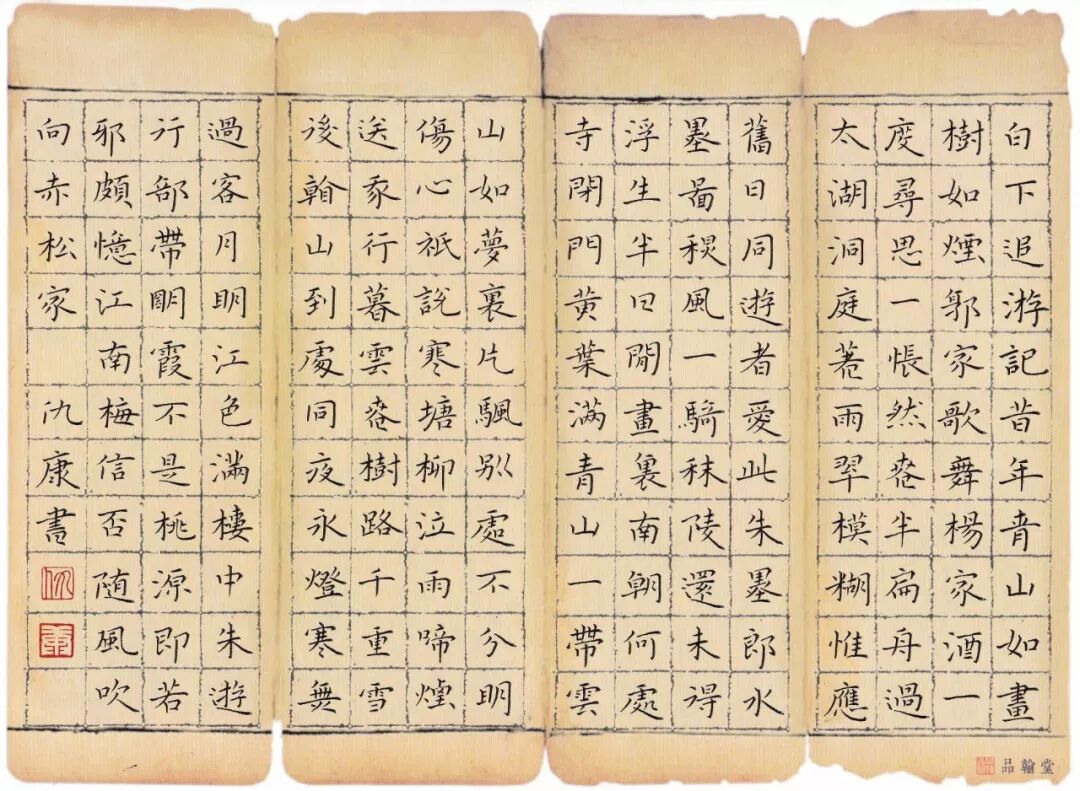 白下追游記昔年青山如畫
樹如煙郭家歌舞楊家酒一
度尋思一悵然春半扁舟過
太湖洞庭春雨翠模糊惟應
舊日同遊者愛此朱墨郎水
墨啚秋風一騎秣陵還未得
浮生半日閒畫裏南朝何處
寺閉門黃葉滿青山一帶雲
山如夢裏片颿別處不分明
傷心祇說寒塘柳泣雨啼煙
送行暮雲春樹路千重雪
後翰山到處同夜永燈寒無
過客月明江色滿樓中朱遊
行部帶朙霞不是桃源即若
邪頗憶江南梅信否随風吹
向赤松家 仇康書
仇
康
品翰堂